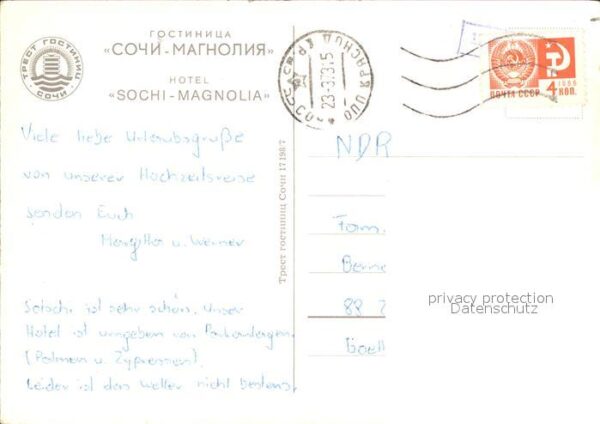 ГОСТИНИЦА
«СОЧИ-МАГНОЛИЯ»
HOTEL
«SOCHI-MAGNOLIA»
ТРЕСТ ГОСТИНИЦ
СОЧИ
23-3.73.15
1966
ПОЧТА СССР 4 КОП.
Viele liebe Urlaubsgrüße
von unserer Hochzeitsreise
senden Euch
u. Werner
Sotschi ist sehr schön. Unser
Hotel ist umgeben von
(Palmen u. Zypressen).
Leider ist das Wetter nicht bestens.
Трест гостиниц Сочи 17 198/7
NDR
Fam.
88
privacy protection
Datenschutz